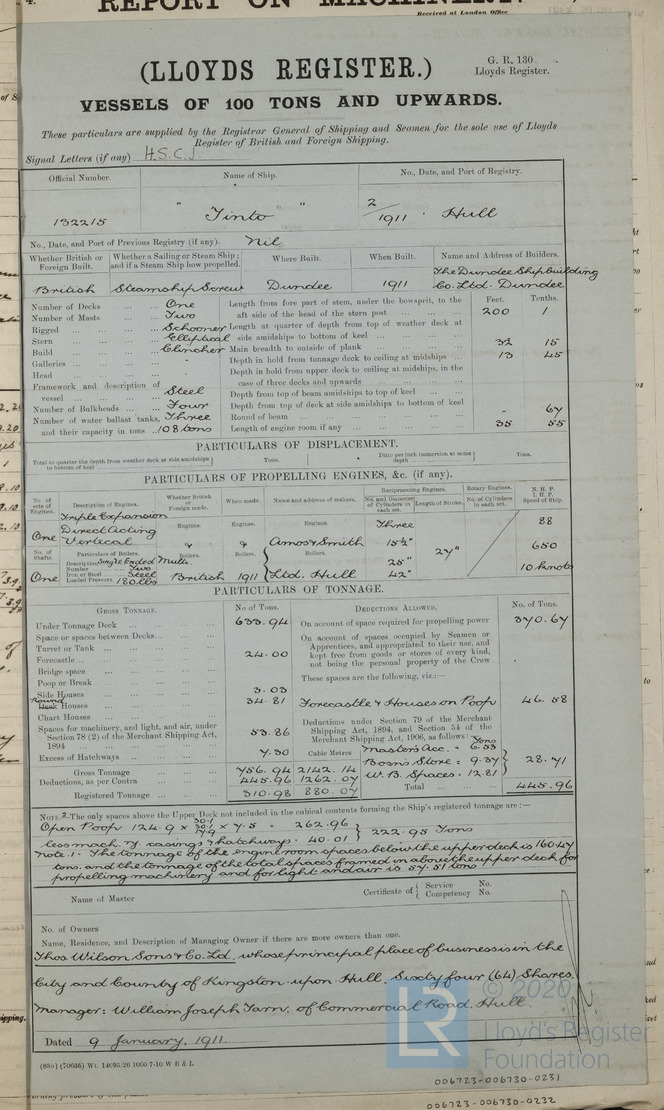 REPORT ON MACHINERY
Received at London Office
(LLOYDS REGISTER.)
G. R. 130
Lloyds Register.
VESSELS OF 100 TONS AND UPWARDS.
These particulars are supplied by the Registrar General of Shipping and Seamen for the sole use of Lloyds
Register of British and Foreign Shipping.
Signal Letters (if any) H.S.C.J.
Official Number. Name of Ship. No., Date, and Port of Registry.
132215 " Tinto " 2/1911 Hull
No., Date, and Port of Previous Registry (if any). Nil
Whether British or Foreign Built. Whether a Sailing or Steam Ship; and if a Steam Ship how propelled. Where Built. When Built. Name and Address of Builders.
British Steamship Screw Dundee 1911 The Dundee Shipbuilding Co. Ltd. Dundee
Number of Decks ... One
Number of Masts ... Two
Rigged ... Schooner
Stern ... Elliptical
Build ... Clincher
Galleries ... -
Head ... -
Framework and description of vessel ... Steel
Number of Bulkheads ... Four
Number of water ballast tanks, Three
and their capacity in tons .. 108 tons
Feet. Tenths.
Length from fore part of stem, under the bowsprit, to the aft side of the head of the stern post 200 1
Length at quarter of depth from top of weather deck at side amidships to bottom of keel
Main breadth to outside of plank 32 15
Depth in hold from tonnage deck to ceiling at midships 13 45
Depth in hold from upper deck to ceiling at midships, in the case of three decks and upwards
Depth from top of beam amidships to top of keel
Depth from top of deck at side amidships to bottom of keel
Round of beam - 67
Length of engine room if any 35 55
PARTICULARS OF DISPLACEMENT.
Total to quarter the depth from weather deck at side amidships to bottom of keel Tons. Ditto per inch immersion at same depth Tons.
PARTICULARS OF PROPELLING ENGINES, &c. (if any).
No. of sets of Engines. Description of Engines. Whether British or Foreign made. When made. Name and address of makers. Reciprocating Engines. Rotary Engines. N. H. P. I. H. P. Speed of Ship.
No. and Diameter of Cylinders in each set. Length of Stroke. No. of Cylinders in each set.
Engines. Engines. Engines.
One Triple Expansion Direct Acting Vertical & & Amos & Smith Three 15½" 24" 88
650
No. of Shafts. Particulars of Boilers. Boilers. Boilers. Boilers.
Description Single Ended Mult:
Number Two
Iron or Steel Steel
Loaded Pressure 180 lbs
One British 1911 Ltd. Hull 25" 42" 10 knots
PARTICULARS OF TONNAGE.
GROSS TONNAGE. No of Tons. DEDUCTIONS ALLOWED. No. of Tons.
Under Tonnage Deck 633.94
Space or spaces between Decks
Turret or Tank
Forecastle 24.00
Bridge space
Poop or Break
Side Houses 3.03
Round Houses 34.81
Chart Houses
Spaces for machinery, and light, and air, under Section 78 (2) of the Merchant Shipping Act, 1894 53.86
Excess of Hatchways 7.30 Cubic Metres
Gross Tonnage 756.94 2142.14
Deductions, as per Contra 445.96 1262.07
Registered Tonnage 310.98 880.07
On account of space required for propelling power 370.67
On account of spaces occupied by Seamen or Apprentices, and appropriated to their use, and kept free from goods or stores of every kind, not being the personal property of the Crew
These spaces are the following, viz.:—
Forecastle & Houses on Poop 46.58
Deductions under Section 79 of the Merchant Shipping Act, 1894, and Section 54 of the Merchant Shipping Act, 1906, as follows: Tons
Master's Acc. = 6.53
Bosn's Store = 9.37 28.71
W. B. Spaces. 12.81
Total 445.96
NOTE. 2. The only spaces above the Upper Deck not included in the cubical contents forming the Ship's registered tonnage are:—
Open Poop 124.9 × × 7.5 = 262.96
less mach.y casings & hatchways. 40.01 } 222.95 Tons
Note 1. The tonnage of the engine room spaces below the upper deck is 160.47
tons. and the tonnage of the total spaces framed in above the upper deck for
propelling machinery and for light and air is 57.51 tons
Name of Master Certificate of { Service No. Competency No.
No. of Owners
Name, Residence, and Description of Managing Owner if there are more owners than one.
Thos Wilson Sons & Co. Ld. whose principal place of business is in the
City and County of Kingston-upon-Hull. Sixty four (64) Shares.
Manager: William Joseph Tarn, of Commercial Road. Hull
Dated 9 January, 1911.
(83o) (70635) Wt. 14695/26 1000 7-10 W B & L
LR
© 2020
Lloyd's Register
Foundation
006723-006730-0231
006723-006730-0232